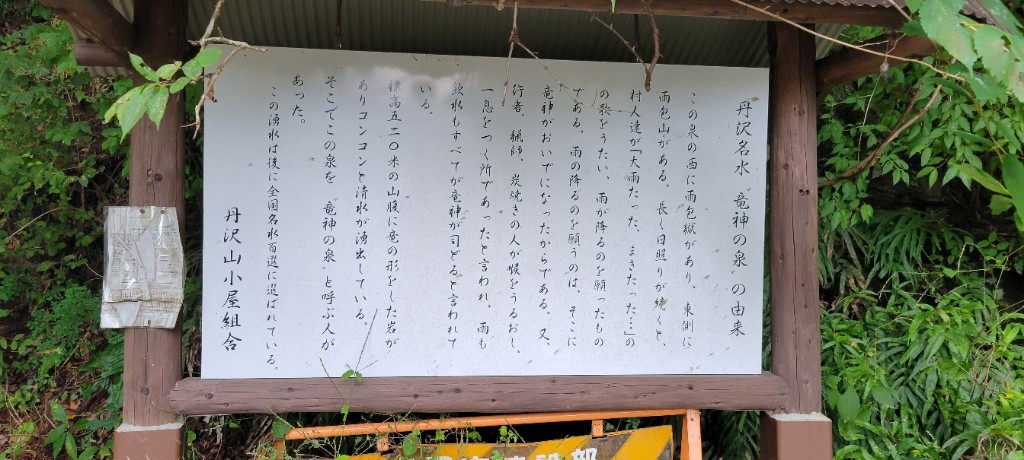 丹沢名水 〝竜神の泉〟の由来
この泉の西に雨包嶽があり、東側に
雨包山がある。長く日照りが続くと、
村人達が「大雨たった、まきたった…」の
の歌をうたい、雨が降るのを願ったもの
である。雨の降るのを願うのは、そこに
竜神がおいでになったからである。又、
行者、猟師、炭焼きの人が喉をうるおし、
一息をつく所であったと言われ、雨も
飲水もすべてが竜神が司どると言われて
いる。
標高五二〇米の山腹に竜の形をした岩が
ありコンコンと清水が湧出している。
そこでこの泉を〝竜神の泉〟と呼ぶ人が
あった。
この湧水は後に全国名水百選に選ばれている。
丹沢山小屋組合